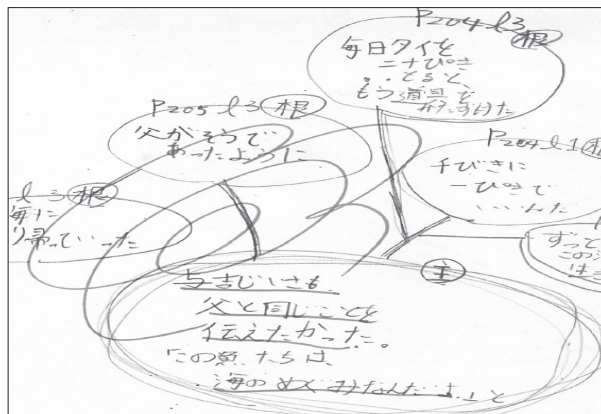 P204 l3 根
毎日タイを
二十ぴき
とると、
もう道具を
かたづけた
P205 l3 根
父がそうで
あったように
P204 l1 根
千びきに
一ぴきで
いいんだ
l3 根
毎に
り帰っていった
ずっと
この海
は
主
与吉じいさも、
父と同じことを
伝えたかった。
「この魚たちは、
海のめぐみなんだよ。」と